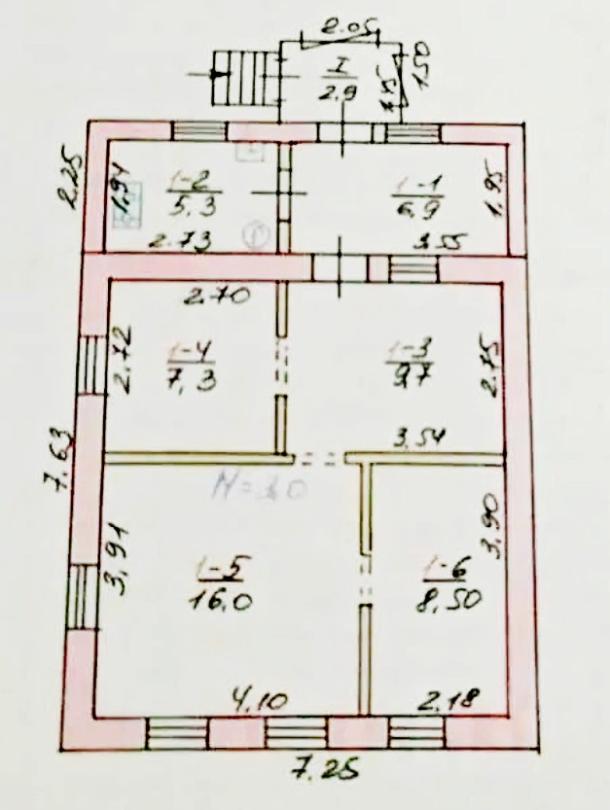 2.05
I
2.9
1.45
1.50
2.25
1.94
1-2
5.3
2.73
1-1
6.9
3.55
1.95
2.70
2.72
1-4
7,3
1-3
9.7
2.75
3,54
7.63
3,91
1-5
16,0
1-6
8,50
3,90
4,10
2.18
7.25